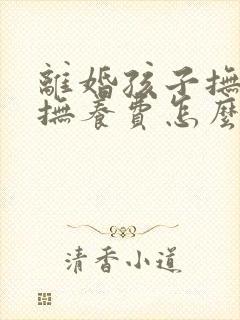 離婚孩子撫
撫養費怎麼
清香小道